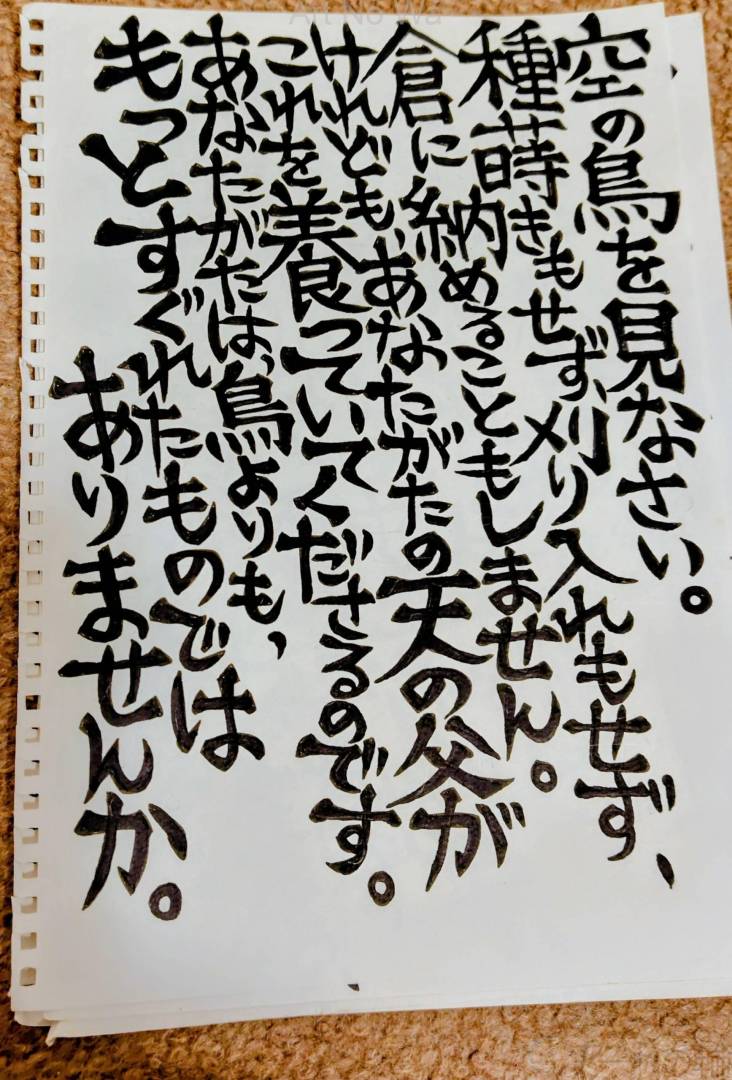 空の鳥を見なさい。
種蒔きもせず、刈り入れもせず、
倉に納めることもしません。
けれども、あなたがたの天の父が
これを養っていてくださるのです。
あなたがたは、鳥よりも、
もっとすぐれたものでは
ありませんか。
Art No Wa